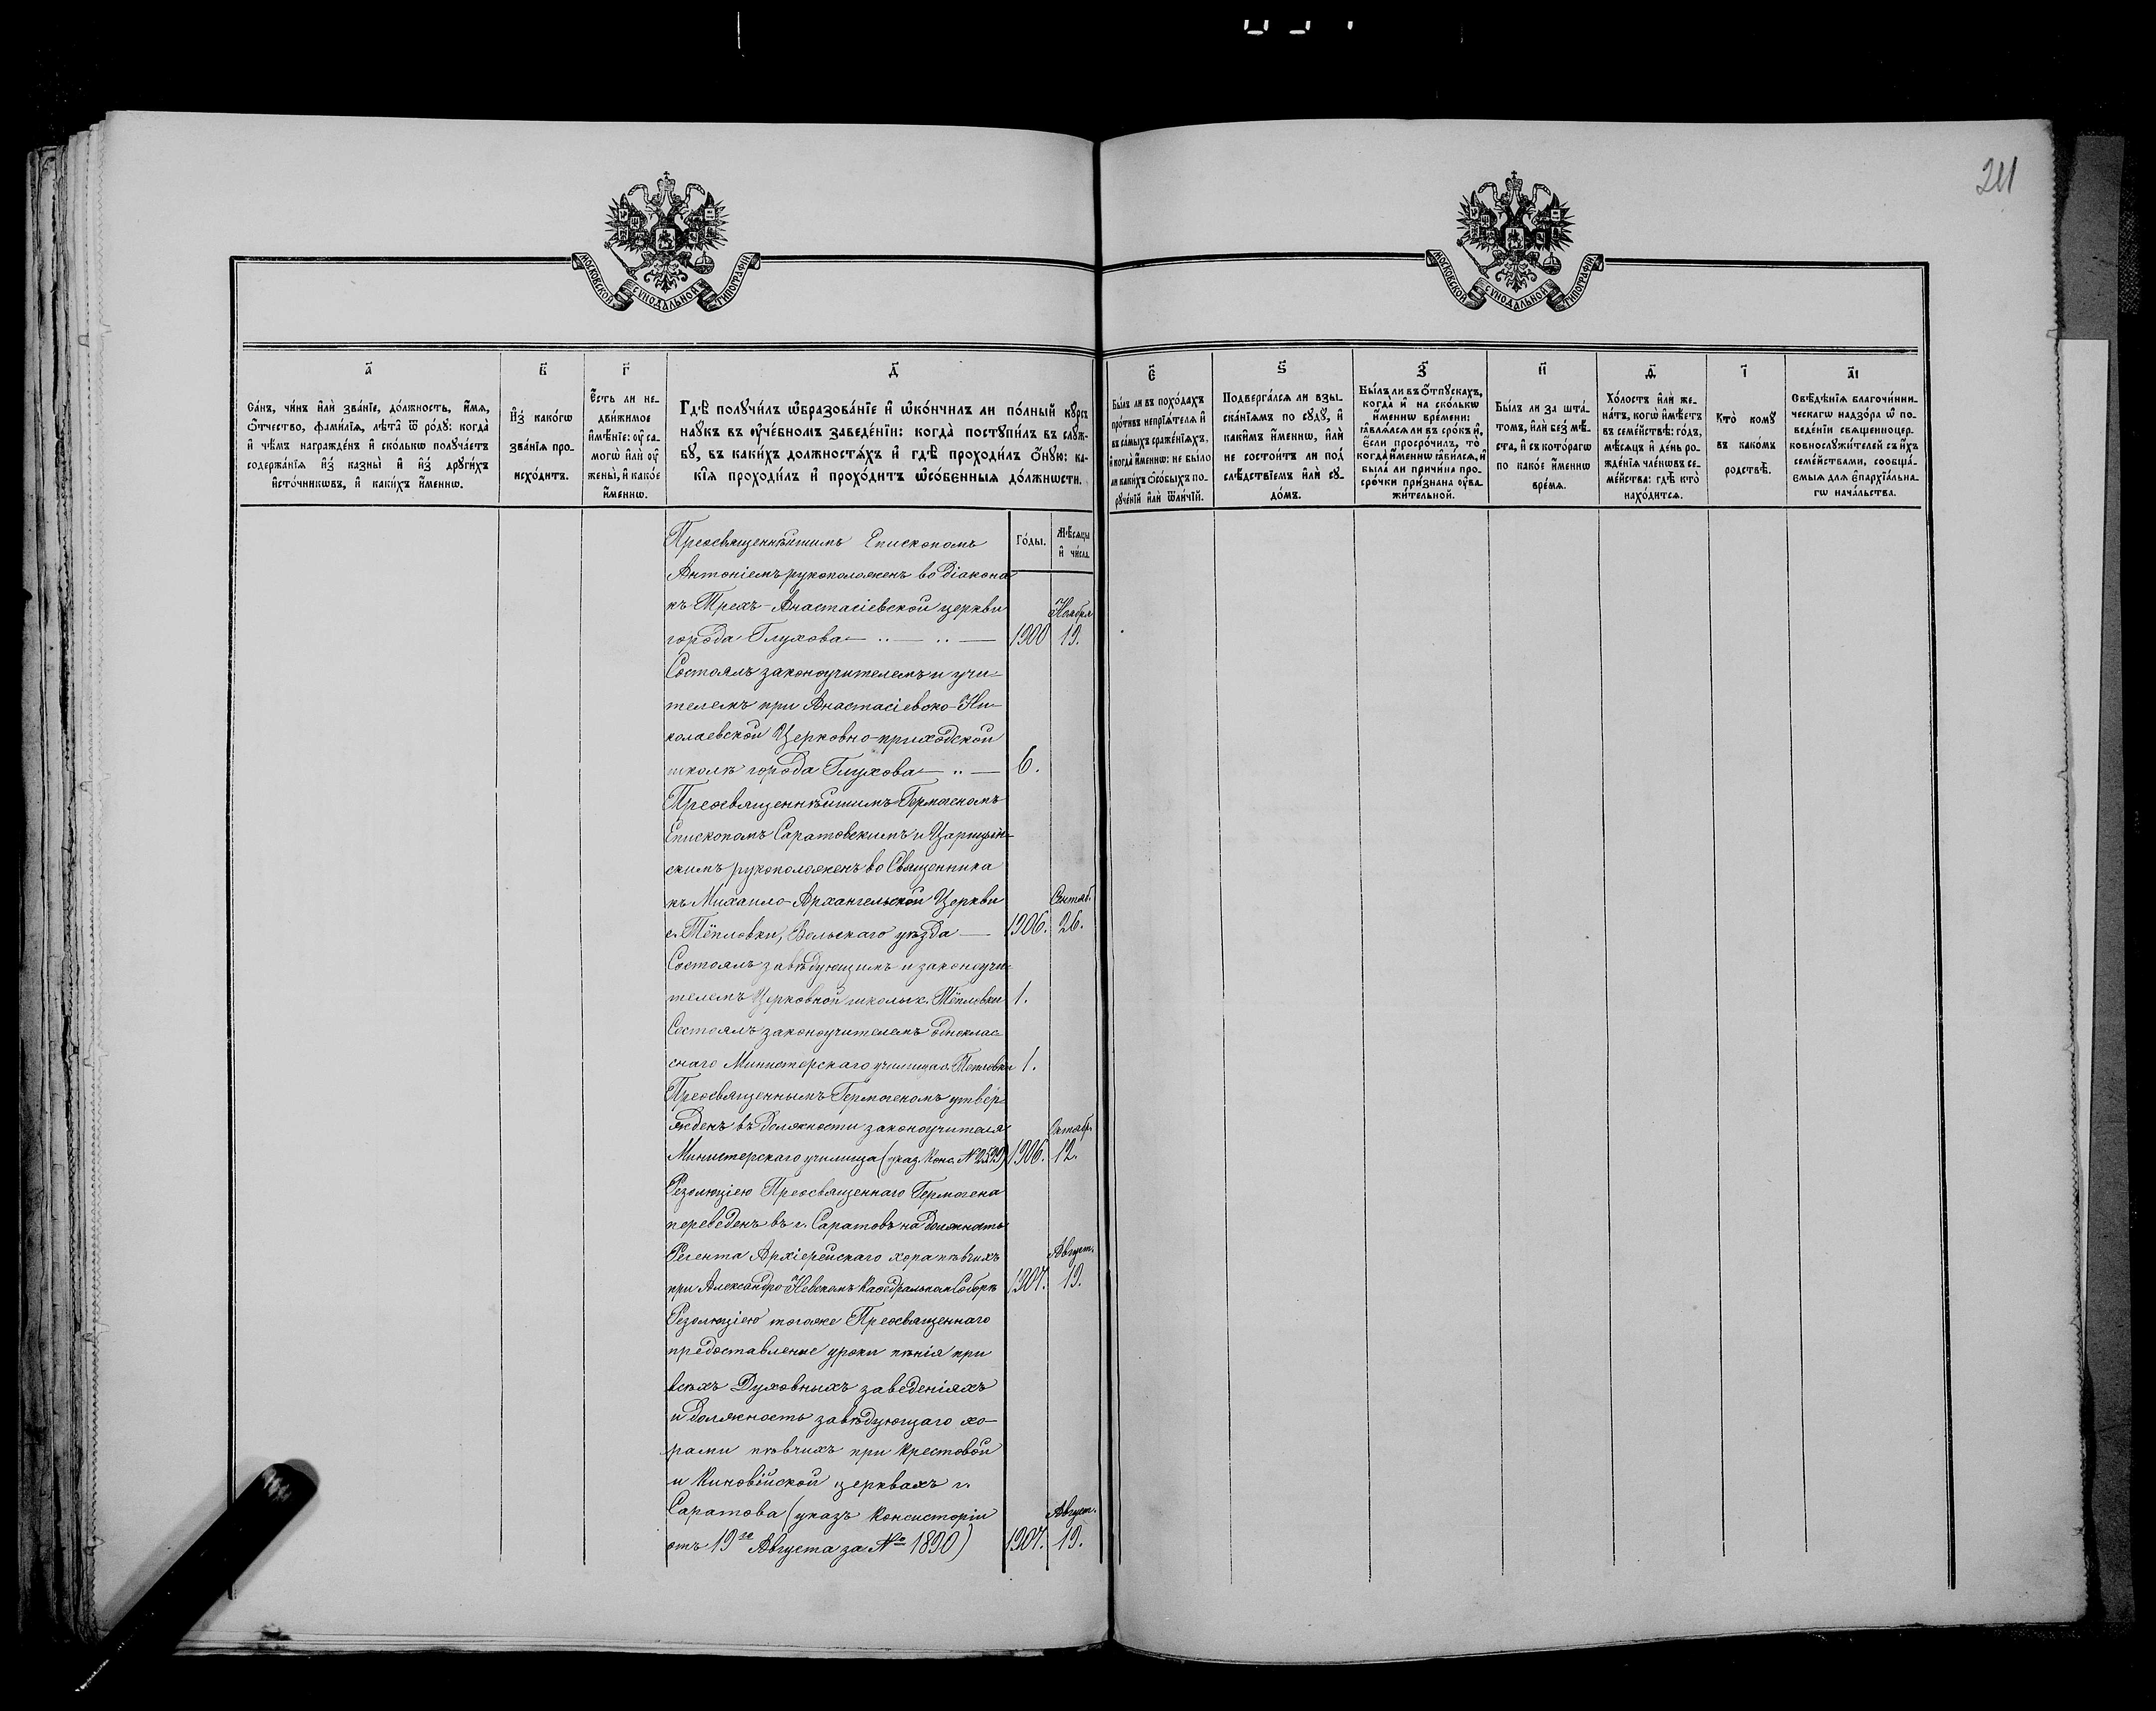 211
МОСКОВСКОЙ СѴНОДАЛЬНОЙ ТИПОГРАФІИ
МОСКОВСКОЙ СѴНОДАЛЬНОЙ ТИПОГРАФІИ
а҃
Са́нъ, чи́нъ и҆лѝ зва́нїе, до́лжность, и҆́мѧ,
ѻ҆́тчество, фами́лїѧ, лѣ́та ѿ ро́дꙋ: когда̀
и҆ чѣ́мъ награжде́нъ и҆ ско́лькѡ полꙋча́етъ
содержа́нїѧ и҆з̾ казны̀ и҆ и҆з̾ дрꙋги́хъ
и҆сто́чникѡвъ, и҆ каки́хъ и҆́меннѡ.
в҃
И҆з̾ како́гѡ
зва́нїѧ про-
исхо́дитъ.
г҃
Е҆́сть ли не-
дви́жимое
и҆мѣ́нїе: ᲂу҆ са-
могѡ̀ и҆лѝ ᲂу҆
жены̀, и҆ како́е
и҆́меннѡ.
д҃
Гдѣ̀ полꙋчи́лъ ѡ҆бразова́нїе и҆ ѡ҆ко́нчилъ ли по́лный кꙋ́рсъ
наꙋ́къ въ ᲂу҆че́бномъ заведе́нїи: когда̀ постꙋпи́лъ въ слꙋ́ж-
бꙋ, въ каки́хъ должностѧ́хъ и҆ гдѣ̀ проходи́лъ ѻ҆́нꙋю: ка-
кі́ѧ проходи́лъ и҆ прохо́дитъ ѡ҆со́бенныѧ до́лжнѡсти.
Го́ды.
Мѣ́сѧцы
и҆ чи́сла.
є҃
Бы́лъ ли въ похо́дахъ
про́тивъ непрїѧ́телѧ и҆
въ са́мыхъ сраже́нїѧхъ,
и҆ когда̀ и҆́меннѡ: не бы́ло
ли каки́хъ ѻ҆со́быхъ по-
рꙋче́нїй и҆лѝ ѿли́чїй.
ѕ҃
Подверга́лсѧ ли взы-
ска́нїѧмъ по сꙋдꙋ̀, и҆
каки̑мъ и҆́меннѡ, и҆лѝ
не состои́тъ ли под̾
слѣ́дствїемъ и҆лѝ сꙋ-
до́мъ.
з҃
Бы́лъ ли въ ѻ҆́тпꙋскахъ,
когда̀ и҆ на ско́лькѡ
и҆́меннѡ вре́мени:
ꙗ҆влѧ́лсѧ ли въ сро́къ и҆,
е҆́сли просро́чилъ, то̀
когда̀ и҆́меннѡ ꙗ҆ви́лсѧ, и҆
была̀ ли причи́на про-
сро́чки при́знана ᲂу҆ва-
жи́тельной.
и҃
Бы́лъ ли за шта́-
томъ, и҆лѝ без̾ мѣ́-
ста, и҆ съ кото́рагѡ
по како́е и҆́меннѡ
вре́мѧ.
ѳ҃
Хо́лостъ и҆лѝ же-
на́тъ, когѡ̀ и҆мѣ́етъ
въ семе́йствѣ: го́дъ,
мѣ́сѧцъ и҆ де́нь ро-
жде́нїѧ чле́нѡвъ се-
ме́йства: гдѣ̀ кто̀
нахо́дитсѧ.
і҃
Кто̀ комꙋ̀
въ како́мъ
родствѣ̀.
а҃і
Свѣ́дѣнїѧ благочи́нни-
ческагѡ надзо́ра ѡ҆ по-
веде́нїи свѧщенноцер-
ковнослꙋжи́телей съ и҆́хъ
семе́йствами, сообща́-
емыѧ для є҆парха́льна-
гѡ нача́льства.
Преосвященнѣйшимъ Епископомъ
Антоніемъ рукоположенъ во діакона
къ Трехъ-Анастасіевской церкви Ноября
города Глухова — „ — „ — 1900 19.
Состоялъ законоучителемъ и учи-
телемъ при Анастасіевско-Ни-
колаевской Церковно-приходской
школѣ города Глухова — „ — 6.
Преосвященнѣйшимъ Гермогеномъ
Епископомъ Саратовскимъ и Царицын-
скимъ рукоположенъ во Священника
къ Михаило-Архангельской Церкви Сентяб.
с. Тёпловки, Вольскаго уѣзда — 1906. 26.
Состоялъ завѣдующимъ и законоучи-
телемъ Церковной школы с. Тёпловки 1.
Состоялъ законоучителемъ одноклас-
снаго Министерскаго училища с. Тепловки 1.
Преосвященнымъ Гермогеномъ утвер-
жденъ въ должности законоучителя Октябр.
Министерскаго училища (указ. Конс. № 2529) 1906. 12.
Резолюціею Преосвященнаго Гермогена
переведенъ въ г. Саратовъ на должность
Регента Архіерейскаго хора пѣвчихъ Август.
при Александро-Невскомъ Каѳедральном Соборѣ 1907. 19.
Резолюціею тогоже Преосвященнаго
предоставлены уроки пѣнія при
всѣхъ Духовныхъ заведеніяхъ
и должность завѣдующаго хо-
рами пѣвчихъ при Крестовой
и Киновійской церквахъ г.
Саратова (указъ Консисторіи Август.
отъ 19го Августа за № 1890) 1907. 19.